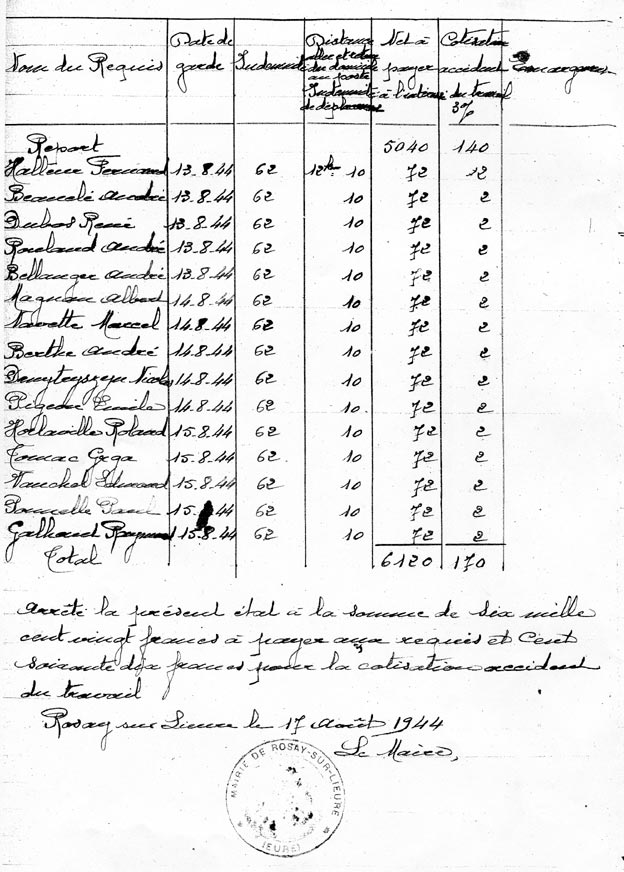 Nom du Requis | Date de garde | Indemnité | Distance aller et retour du domicile au poste Indemnité de déplacement | Net à payer à l'intéressé | Cotisation accident du travail 3% | Emargement
Report 5040 140
Halleur Fernand 13-8-44 62 12km 10 72 2
Beauclé André 13-8-44 62 10 72 2
Dubos René 13-8-44 62 10 72 2
Rouland André 13-8-44 62 10 72 2
Bellanger André 13-8-44 62 10 72 2
Magnan Albert 14-8-44 62 10 72 2
Navette Marcel 14-8-44 62 10 72 2
Berthe André 14-8-44 62 10 72 2
14-8-44 62 10 72 2
Pigeon Emile 14-8-44 62 10 72 2
Horlaville Roland 15-8-44 62 10 72 2
15-8-44 62 10 72 2
Vauchel Edmond 15-8-44 62 10 72 2
Paul 15- 44 62 10 72 2
Galhaut Raymond 15-8-44 62 10 72 2
Total 6120 170
Arrêté la présent état à la somme de six mille
cent vingt francs à payer aux requis et Cent
soixante dix francs pour la cotisation accident
du travail
Rosay sur Lieure le 17 Août 1944
Le Maire,
MAIRIE DE ROSAY-SUR-LIEURE
(EURE)